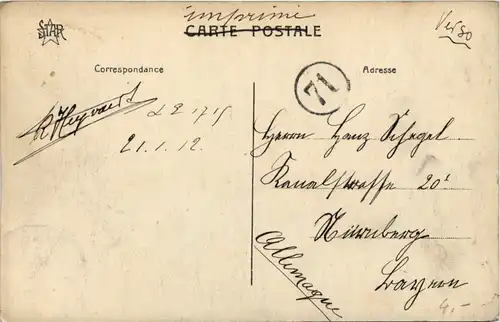 imprimé
Verso
STAR
CARTE POSTALE
Correspondance
Adresse
71
R Heyvaert
L 2 1715
21.1.12.
Herrn Hanz Schegel
Kanalstrasse 20I
Nürnberg
Bayern
Allemagne
4,-